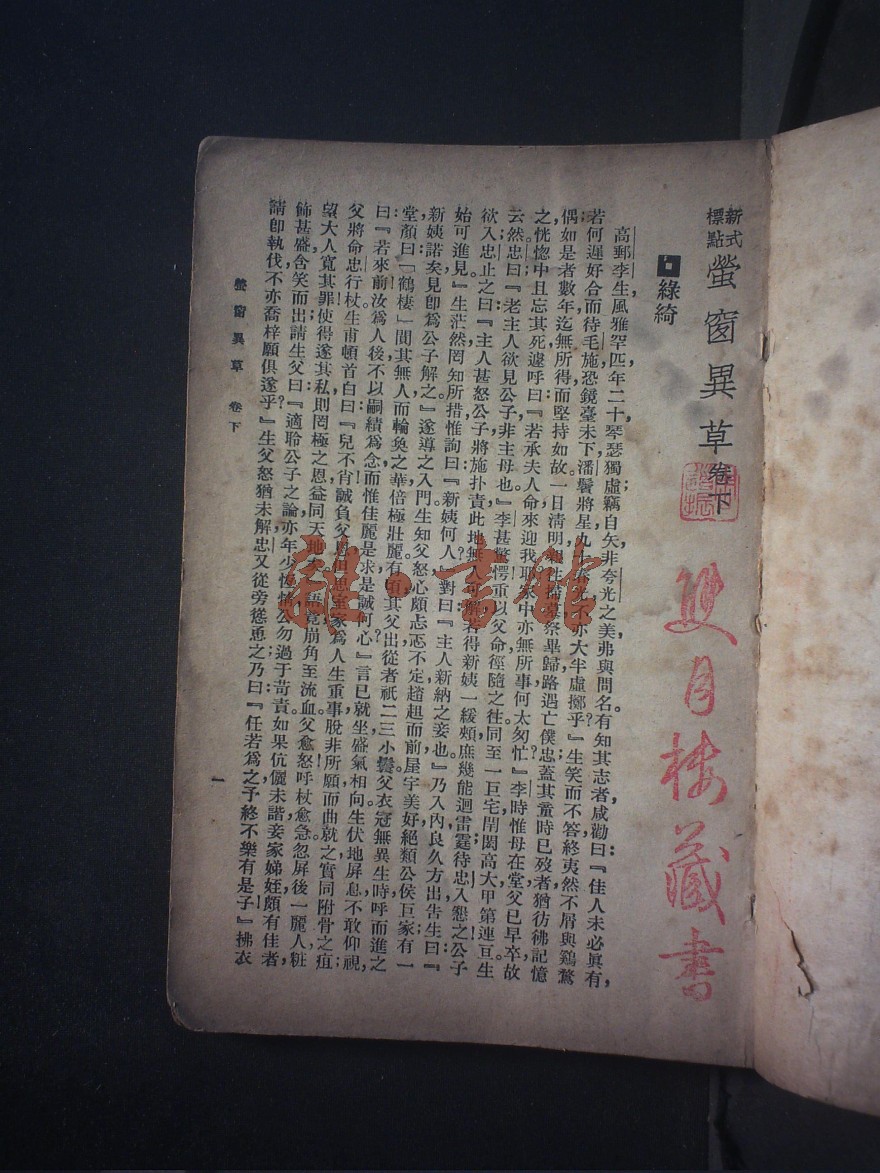 新式標點 螢窗異草 卷下
雙月樓藏書
綠綺
高郵李生風雅罕匹年二十琴瑟獨虛竊自矢非夸光之美弗與問名有知其志者咸勸曰『佳人未必眞有,
若何遲好合而待毛施恐鏡臺未下潘鬢將星九十春光不亦大半虛擲乎?』生笑而不答終夷然不屑與鷄鶩
偶如是者數年迄無所得而堅持如故一日清明
祭畢歸路遇亡僕忠蓋其童時已歿者猶彷彿記憶
之恍惚中且忘其死遽呼曰『若承夫人命來迎我耶家中亦無所事何太匆忙?』李時惟母在堂父已早卒故
云然忠曰『老主人欲見公子非主母也』李甚驚愕重以父命徑隨之往同至一巨宅閈閎高大甲第連亘生
欲入忠止之曰『主人甚怒公子將施扑責此地無人可解若得新姨一緩頰庶幾能迴雷霆待忠入懇之公子
始可進見』生茫然罔知所措惟詢曰『新姨何人?』對曰『主人新納之妾也』乃入內良久方出告生曰『
新姨諾矣見卽爲公子解之』遂導之入門生知父怒心頗忐忑不定趦趄而前屋宇美好絕類公侯巨家有一
堂顏曰「鶴棲」閴其無人而輪奐之華倍極壯麗有頃其父出從者祇二三小鬟父衣冠無異生時呼而進之
曰『若來前汝爲人後不以嗣續爲念而惟佳麗是求是誠何心?』言已就坐盛氣相向生伏地屛息不敢仰視,
父將命忠行杖生甫頓首白曰『兒不肖誠負父恩但思室家爲人生重事脫非所願而曲就之實同附骨之疽;
望大人寬其罪使得遂其私則罔極之恩益同天地矣』語竟崩角至流血父愈怒呼杖愈急忽屛後一麗人粧
飾甚盛含笑而出請生父曰『適聆公子之論亦年少恆情公勿過于苛責如果伉儷未諧妾家娣姪頗有佳者,
請卽執伐不亦喬梓願俱遂乎?』生父怒猶未解忠又從旁慫恿之乃曰『任若爲之予終不樂有是子』拂衣
螢窗異草 卷下
一
雜·書館